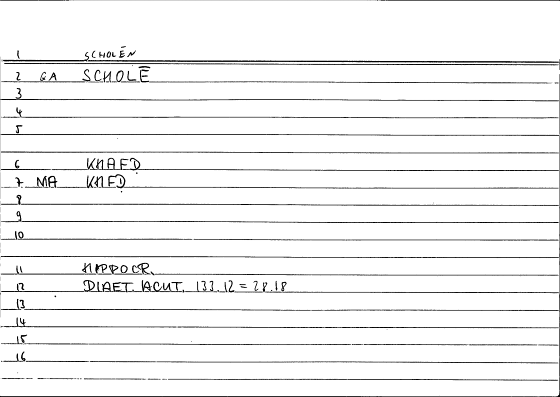 1 SCHOLĒN
2 GA SCHOLĒ
3
4
5
6 KHAFD
7 MA KHFD
8
9
10
11 HIPPOCR.
12 DIAET. ACUT. 133.12 = 28.18
13
14
15
16